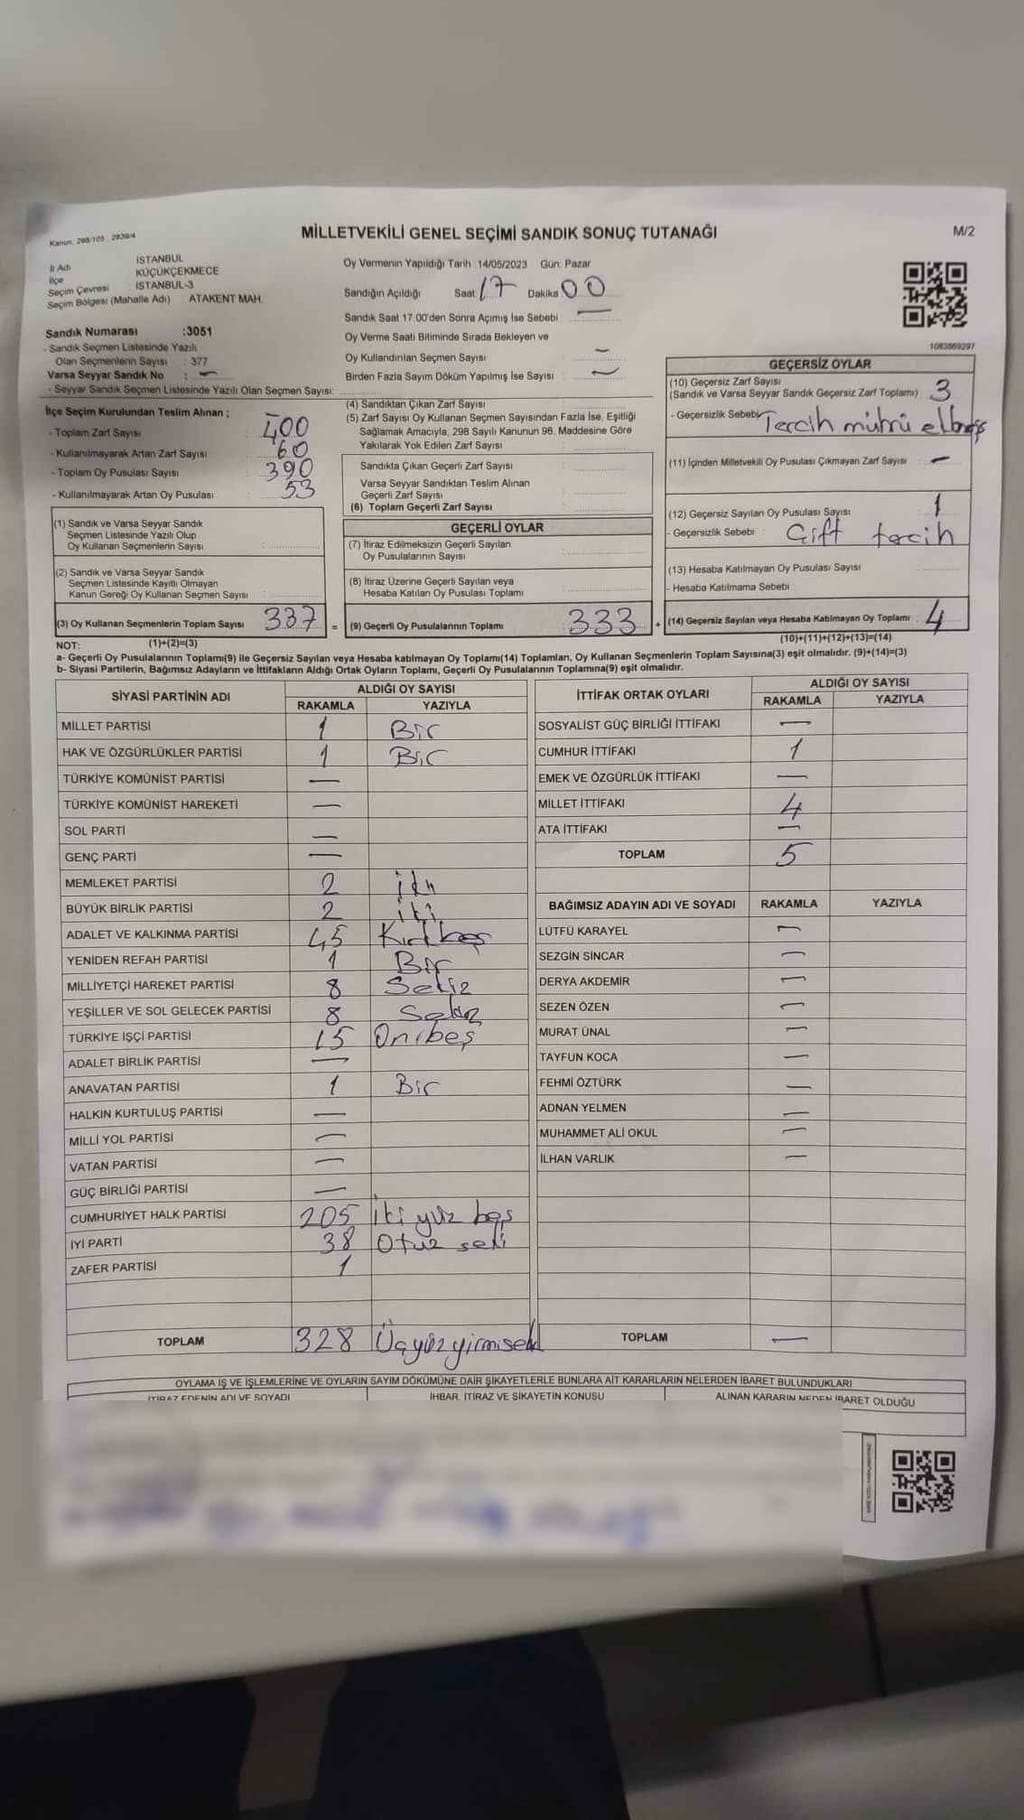 Kanun: 298/105 , 2839/4
MİLLETVEKİLİ GENEL SEÇİMİ SANDIK SONUÇ TUTANAĞI
M/2
İl Adı İSTANBUL
İlçe KÜÇÜKÇEKMECE
Seçim Çevresi İSTANBUL-3
Seçim Bölgesi (Mahalle Adı) : ATAKENT MAH.
Oy Vermenin Yapıldığı Tarih :14/05/2023 Gün: Pazar
Sandığın Açıldığı Saat 17 Dakika 00
Sandık Saat 17:00'den Sonra Açımış İse Sebebi : —
Oy Verme Saati Bitiminde Sırada Bekleyen ve
Oy Kullandırılan Seçmen Sayısı : —
Birden Fazla Sayım Döküm Yapılmış İse Sayısı : —
1083869297
Sandık Numarası :3051
- Sandık Seçmen Listesinde Yazılı
Olan Seçmenlerin Sayısı : 377
Varsa Seyyar Sandık No : —
- Seyyar Sandık Seçmen Listesinde Yazılı Olan Seçmen Sayısı:
İlçe Seçim Kurulundan Teslim Alınan ;
- Toplam Zarf Sayısı 400
- Kullanılmayarak Artan Zarf Sayısı 60
- Toplam Oy Pusulası Sayısı 390
- Kullanılmayarak Artan Oy Pusulası 53
(1) Sandık ve Varsa Seyyar Sandık
Seçmen Listesinde Yazılı Olup
Oy Kullanan Seçmenlerin Sayısı :
(2) Sandık ve Varsa Seyyar Sandık
Seçmen Listesinde Kayıtlı Olmayan
Kanun Gereği Oy Kullanan Seçmen Sayısı :
(3) Oy Kullanan Seçmenlerin Toplam Sayısı 337 =
(1)+(2)=(3)
(4) Sandıktan Çıkan Zarf Sayısı :
(5) Zarf Sayısı Oy Kullanan Seçmen Sayısından Fazla İse, Eşitliği
Sağlamak Amacıyla, 298 Sayılı Kanunun 98. Maddesine Göre
Yakılarak Yok Edilen Zarf Sayısı :
Sandıkta Çıkan Geçerli Zarf Sayısı :
Varsa Seyyar Sandıktan Teslim Alınan
Geçerli Zarf Sayısı :
(6) Toplam Geçerli Zarf Sayısı :
GEÇERLİ OYLAR
(7) İtiraz Edilmeksizin Geçerli Sayılan
Oy Pusulalarının Sayısı :
(8) İtiraz Üzerine Geçerli Sayılan veya
Hesaba Katılan Oy Pusulası Toplamı :
(9) Geçerli Oy Pusulalarının Toplamı : 333 +
GEÇERSİZ OYLAR
(10) Geçersiz Zarf Sayısı
(Sandık ve Varsa Seyyar Sandık Geçersiz Zarf Toplamı) : 3
- Geçersizlik Sebebi: Tercih mührü
(11) İçinden Milletvekili Oy Pusulası Çıkmayan Zarf Sayısı : —
(12) Geçersiz Sayılan Oy Pusulası Sayısı : 1
- Geçersizlik Sebebi : Çift tercih
(13) Hesaba Katılmayan Oy Pusulası Sayısı :
- Hesaba Katılmama Sebebi :
(14) Geçersiz Sayılan veya Hesaba Katılmayan Oy Toplamı : 4
(10)+(11)+(12)+(13)=(14)
NOT:
a- Geçerli Oy Pusulalarının Toplamı(9) ile Geçersiz Sayılan veya Hesaba katılmayan Oy Toplamı(14) Toplamları, Oy Kullanan Seçmenlerin Toplam Sayısına(3) eşit olmalıdır. (9)+(14)=(3)
b- Siyasi Partilerin, Bağımsız Adayların ve İttifakların Aldığı Ortak Oyların Toplamı, Geçerli Oy Pusulalarının Toplamına(9) eşit olmalıdır.
SİYASİ PARTİNİN ADI ALDIĞI OY SAYISI
RAKAMLA YAZIYLA
MİLLET PARTİSİ 1 Bir
HAK VE ÖZGÜRLÜKLER PARTİSİ 1 Bir
TÜRKİYE KOMÜNİST PARTİSİ —
TÜRKİYE KOMÜNİST HAREKETİ —
SOL PARTİ —
GENÇ PARTİ —
MEMLEKET PARTİSİ 2 iki
BÜYÜK BİRLİK PARTİSİ 2 iki
ADALET VE KALKINMA PARTİSİ 45 Kırkbeş
YENİDEN REFAH PARTİSİ 1 Bir
MİLLİYETÇİ HAREKET PARTİSİ 8 Sekiz
YEŞİLLER VE SOL GELECEK PARTİSİ 8 Sekiz
TÜRKİYE İŞÇİ PARTİSİ 15 Onbeş
ADALET BİRLİK PARTİSİ —
ANAVATAN PARTİSİ 1 Bir
HALKIN KURTULUŞ PARTİSİ —
MİLLİ YOL PARTİSİ —
VATAN PARTİSİ —
GÜÇ BİRLİĞİ PARTİSİ —
CUMHURİYET HALK PARTİSİ 205 İki yüz beş
İYİ PARTİ 38 Otuz seki
ZAFER PARTİSİ 1
TOPLAM 328 Üçyüzyirmisek
İTTİFAK ORTAK OYLARI ALDIĞI OY SAYISI
RAKAMLA YAZIYLA
SOSYALİST GÜÇ BİRLİĞİ İTTİFAKI —
CUMHUR İTTİFAKI 1
EMEK VE ÖZGÜRLÜK İTTİFAKI —
MİLLET İTTİFAKI 4
ATA İTTİFAKI —
TOPLAM 5
BAĞIMSIZ ADAYIN ADI VE SOYADI RAKAMLA YAZIYLA
LÜTFÜ KARAYEL —
SEZGİN SİNCAR —
DERYA AKDEMİR —
SEZEN ÖZEN —
MURAT ÜNAL —
TAYFUN KOCA —
FEHMİ ÖZTÜRK —
ADNAN YELMEN —
MUHAMMET ALİ OKUL —
İLHAN VARLIK —
TOPLAM —
OYLAMA İŞ VE İŞLEMLERİNE VE OYLARIN SAYIM DÖKÜMÜNE DAİR ŞİKAYETLERLE BUNLARA AİT KARARLARIN NELERDEN İBARET BULUNDUKLARI
İTİRAZ EDENİN ADI VE SOYADI İHBAR, İTİRAZ VE ŞİKAYETİN KONUSU ALINAN KARARIN NEDEN İBARET OLDUĞU